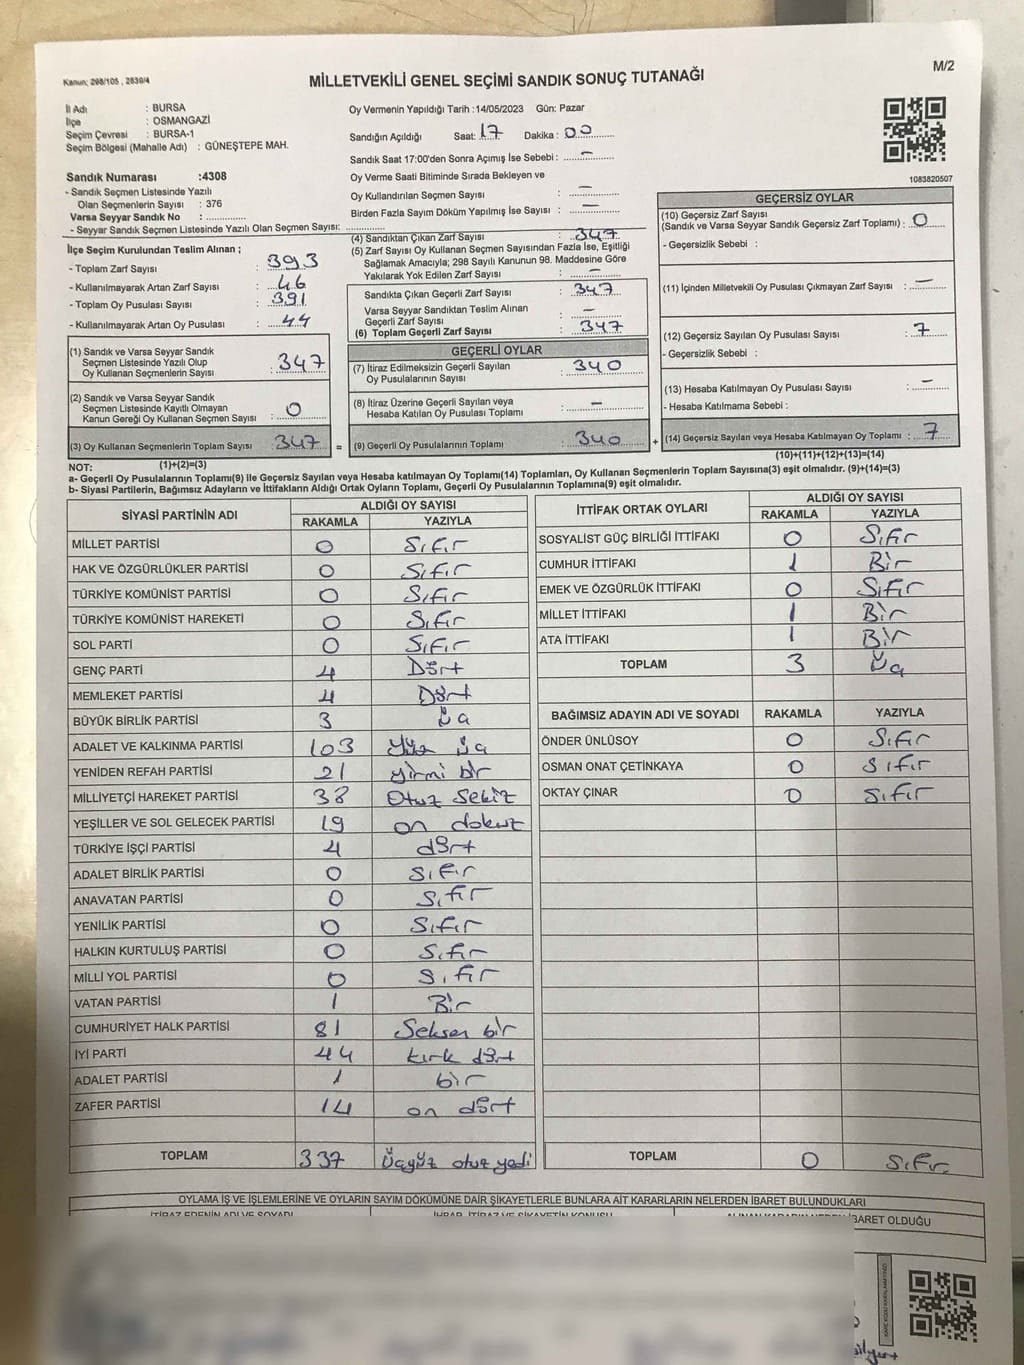 M/2
Kanun; 298/105 , 2839/4
MİLLETVEKİLİ GENEL SEÇİMİ SANDIK SONUÇ TUTANAĞI
İl Adı : BURSA
İlçe : OSMANGAZİ
Seçim Çevresi : BURSA-1
Seçim Bölgesi (Mahalle Adı) : GÜNEŞTEPE MAH.
Sandık Numarası :4308
- Sandık Seçmen Listesinde Yazılı
Olan Seçmenlerin Sayısı : 376
Varsa Seyyar Sandık No : ..............
- Seyyar Sandık Seçmen Listesinde Yazılı Olan Seçmen Sayısı: ..............
Oy Vermenin Yapıldığı Tarih :14/05/2023 Gün: Pazar
Sandığın Açıldığı Saat: 17 Dakika : 00
Sandık Saat 17:00'den Sonra Açımış İse Sebebi : –
Oy Verme Saati Bitiminde Sırada Bekleyen ve
Oy Kullandırılan Seçmen Sayısı : –
Birden Fazla Sayım Döküm Yapılmış İse Sayısı : –
1083820507
İlçe Seçim Kurulundan Teslim Alınan ;
- Toplam Zarf Sayısı : 393
- Kullanılmayarak Artan Zarf Sayısı : 46
- Toplam Oy Pusulası Sayısı : 391
- Kullanılmayarak Artan Oy Pusulası : 44
(1) Sandık ve Varsa Seyyar Sandık
Seçmen Listesinde Yazılı Olup
Oy Kullanan Seçmenlerin Sayısı : 347
(2) Sandık ve Varsa Seyyar Sandık
Seçmen Listesinde Kayıtlı Olmayan
Kanun Gereği Oy Kullanan Seçmen Sayısı : 0
(3) Oy Kullanan Seçmenlerin Toplam Sayısı : 347 =
(4) Sandıktan Çıkan Zarf Sayısı : 347
(5) Zarf Sayısı Oy Kullanan Seçmen Sayısından Fazla İse, Eşitliği
Sağlamak Amacıyla; 298 Sayılı Kanunun 98. Maddesine Göre
Yakılarak Yok Edilen Zarf Sayısı : –
Sandıkta Çıkan Geçerli Zarf Sayısı : 347
Varsa Seyyar Sandıktan Teslim Alınan
Geçerli Zarf Sayısı : –
(6) Toplam Geçerli Zarf Sayısı : 347
GEÇERLİ OYLAR
(7) İtiraz Edilmeksizin Geçerli Sayılan
Oy Pusulalarının Sayısı : 340
(8) İtiraz Üzerine Geçerli Sayılan veya
Hesaba Katılan Oy Pusulası Toplamı : –
(9) Geçerli Oy Pusulalarının Toplamı : 340 +
GEÇERSİZ OYLAR
(10) Geçersiz Zarf Sayısı
(Sandık ve Varsa Seyyar Sandık Geçersiz Zarf Toplamı) : 0
- Geçersizlik Sebebi :
(11) İçinden Milletvekili Oy Pusulası Çıkmayan Zarf Sayısı : –
(12) Geçersiz Sayılan Oy Pusulası Sayısı : 7
- Geçersizlik Sebebi :
(13) Hesaba Katılmayan Oy Pusulası Sayısı : –
- Hesaba Katılmama Sebebi :
(14) Geçersiz Sayılan veya Hesaba Katılmayan Oy Toplamı : 7
NOT: (1)+(2)=(3) (10)+(11)+(12)+(13)=(14)
a- Geçerli Oy Pusulalarının Toplamı(9) ile Geçersiz Sayılan veya Hesaba katılmayan Oy Toplamı(14) Toplamları, Oy Kullanan Seçmenlerin Toplam Sayısına(3) eşit olmalıdır. (9)+(14)=(3)
b- Siyasi Partilerin, Bağımsız Adayların ve İttifakların Aldığı Ortak Oyların Toplamı, Geçerli Oy Pusulalarının Toplamına(9) eşit olmalıdır.
SİYASİ PARTİNİN ADI ALDIĞI OY SAYISI
RAKAMLA YAZIYLA
MİLLET PARTİSİ 0 Sıfır
HAK VE ÖZGÜRLÜKLER PARTİSİ 0 Sıfır
TÜRKİYE KOMÜNİST PARTİSİ 0 Sıfır
TÜRKİYE KOMÜNİST HAREKETİ 0 Sıfır
SOL PARTİ 0 Sıfır
GENÇ PARTİ 4 Dört
MEMLEKET PARTİSİ 4 Dört
BÜYÜK BİRLİK PARTİSİ 3 Üç
ADALET VE KALKINMA PARTİSİ 103 Yüz üç
YENİDEN REFAH PARTİSİ 21 yirmi bir
MİLLİYETÇİ HAREKET PARTİSİ 38 Otuz Sekiz
YEŞİLLER VE SOL GELECEK PARTİSİ 19 on dokuz
TÜRKİYE İŞÇİ PARTİSİ 4 dört
ADALET BİRLİK PARTİSİ 0 Sıfır
ANAVATAN PARTİSİ 0 Sıfır
YENİLİK PARTİSİ 0 Sıfır
HALKIN KURTULUŞ PARTİSİ 0 Sıfır
MİLLİ YOL PARTİSİ 0 Sıfır
VATAN PARTİSİ 1 Bir
CUMHURİYET HALK PARTİSİ 81 Seksen bir
İYİ PARTİ 44 kırk dört
ADALET PARTİSİ 1 bir
ZAFER PARTİSİ 14 on dört
TOPLAM 337 Üçyüz otuz yedi
İTTİFAK ORTAK OYLARI ALDIĞI OY SAYISI
RAKAMLA YAZIYLA
SOSYALİST GÜÇ BİRLİĞİ İTTİFAKI 0 Sıfır
CUMHUR İTTİFAKI 1 Bir
EMEK VE ÖZGÜRLÜK İTTİFAKI 0 Sıfır
MİLLET İTTİFAKI 1 Bir
ATA İTTİFAKI 1 Bir
TOPLAM 3 Üç
BAĞIMSIZ ADAYIN ADI VE SOYADI RAKAMLA YAZIYLA
ÖNDER ÜNLÜSOY 0 Sıfır
OSMAN ONAT ÇETİNKAYA 0 Sıfır
OKTAY ÇINAR 0 Sıfır
TOPLAM 0 Sıfır
OYLAMA İŞ VE İŞLEMLERİNE VE OYLARIN SAYIM DÖKÜMÜNE DAİR ŞİKAYETLERLE BUNLARA AİT KARARLARIN NELERDEN İBARET BULUNDUKLARI
İTİRAZ EDENİN ADI VE SOYADI İHBAR, İTİRAZ VE ŞİKAYETİN KONUSU İBARET OLDUĞU